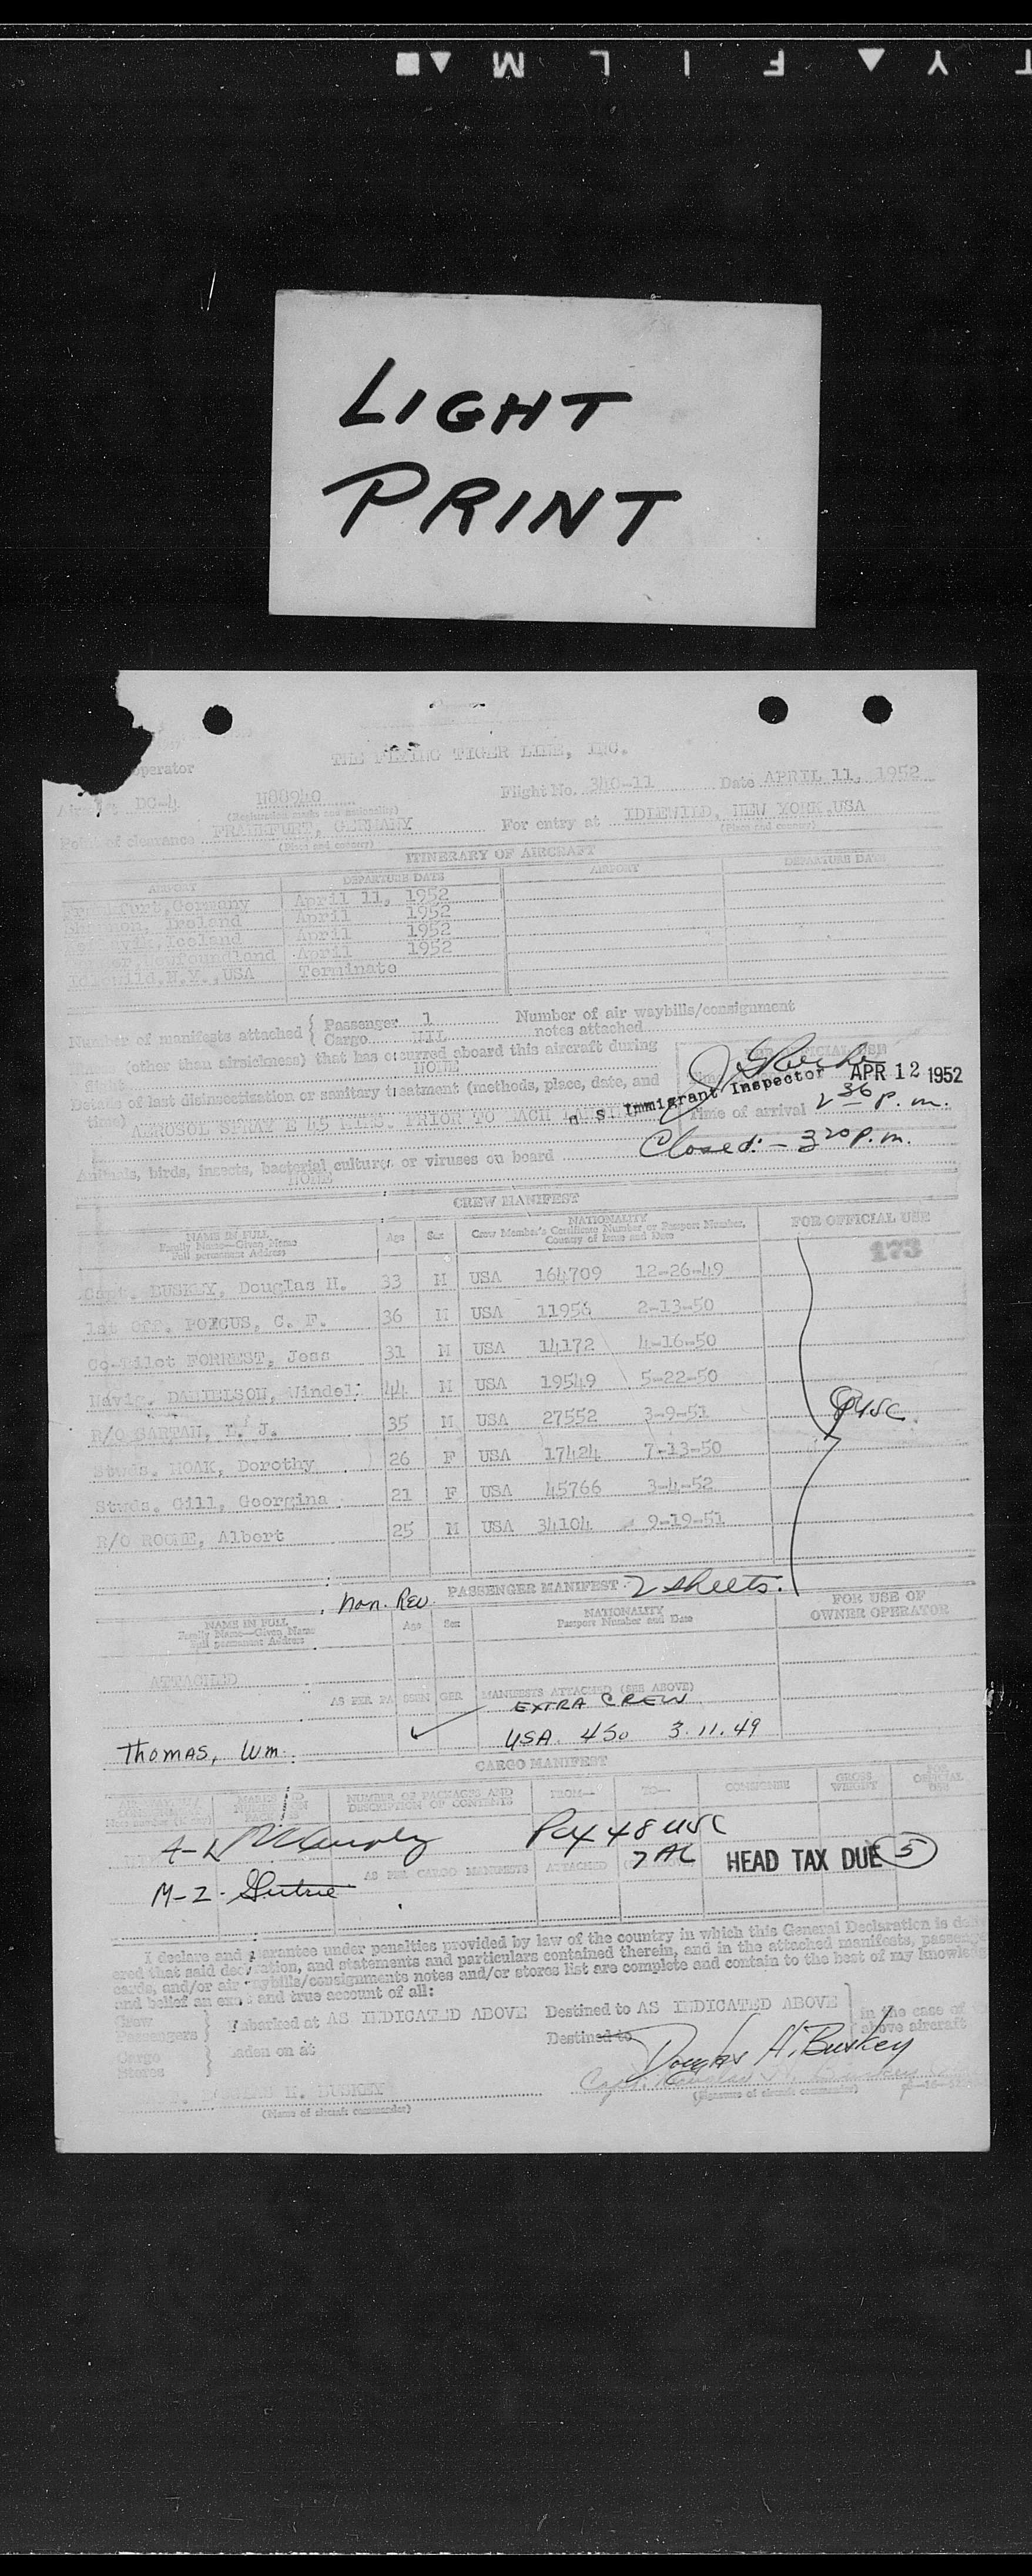 LIGHT
PRINT
Operator
THE FLYING TIGER LINE, INC.
DC-4 N88940 Flight No. 340-11 Date APRIL 11, 1952
(Registration marks and nationality)
clearance FRANKFURT, GERMANY For entry at IDLEWILD, NEW YORK, USA
(Place and country) (Place and country)
ITINERARY OF AIRCRAFT
AIRPORT DEPARTURE DATE AIRPORT DEPARTURE DATE
Germany April 11, 1952
Ireland April 1952
Iceland April 1952
April 1952
Idlewild, N.Y., USA Terminate
Number of manifests attached { Passenger 1 Number of air waybills/consignment
Cargo NIL notes attached
(other than airsickness) that has occurred aboard this aircraft during
NONE
FOR OFFICIAL USE
Details of last disinsectization or sanitary treatment (methods, place, date, and
time) AEROSOL SPRAY 45 PRIOR TO EACH
U. S. Immigrant Inspector APR 12 1952
Time of arrival 2 36 p.m.
Closed:- 3 20 p.m.
Animals, birds, insects, bacterial cultures or viruses on board
NONE
CREW MANIFEST
NAME IN FULL Age Sex NATIONALITY FOR OFFICIAL USE
Family Name—Given Name Crew Member's Certificate Number or Passport Number,
Full permanent Address Country of Issue and Date
173
Capt. BUSKEY, Douglas H. 33 M USA 164709 12-26-49
1st Off. C. F. 36 M USA 11956 2-13-50
Co-Pilot FORREST, Jess 31 M USA 14172 4-16-50
Navig. DANIELSON, Windel 44 M USA 19549 5-22-50
R/O SARTAN, J. 35 M USA 27552 3-9-51
Studs. MOAK, Dorothy 26 F USA 17424 7-13-50
Studs. Gill, Georgina 21 F USA 45766 3-4-52
R/O ROCHE, Albert 25 M USA 34104 9-19-51
Non. Rev. PASSENGER MANIFEST 2 sheets.
NAME IN FULL Age Sex NATIONALITY FOR USE OF
Family Name—Given Name Passport Number and Date OWNER OPERATOR
Full permanent Address
ATTACHED
AS PER PASSENGER MANIFESTS ATTACHED (SEE ABOVE)
EXTRA CREW
Thomas, Wm. USA 450 3.11.49
CARGO MANIFEST
NUMBER OF PACKAGES AND FROM— TO— CONSIGNEE GROSS FOR
DESCRIPTION OF CONTENTS WEIGHT OFFICIAL
USE
48 USC
AS PER CARGO MANIFESTS ATTACHED 7 AL HEAD TAX DUE 5
M-2.
I declare and guarantee under penalties provided by law of the country in which this General Declaration is
ered that said declaration, and statements and particulars contained therein, and in the attached manifests,
cards, and/or air waybills/consignments notes and/or stores list are complete and contain to the best of my
and belief an exact and true account of all:
Crew
Passengers } Embarked at AS INDICATED ABOVE Destined to AS INDICATED ABOVE in the case of
above aircraft
Cargo
Stores } Laden on at Destined to
Douglas H. Buskey
H. BUSKEY
(Name of aircraft commander) (Signature of aircraft commander)